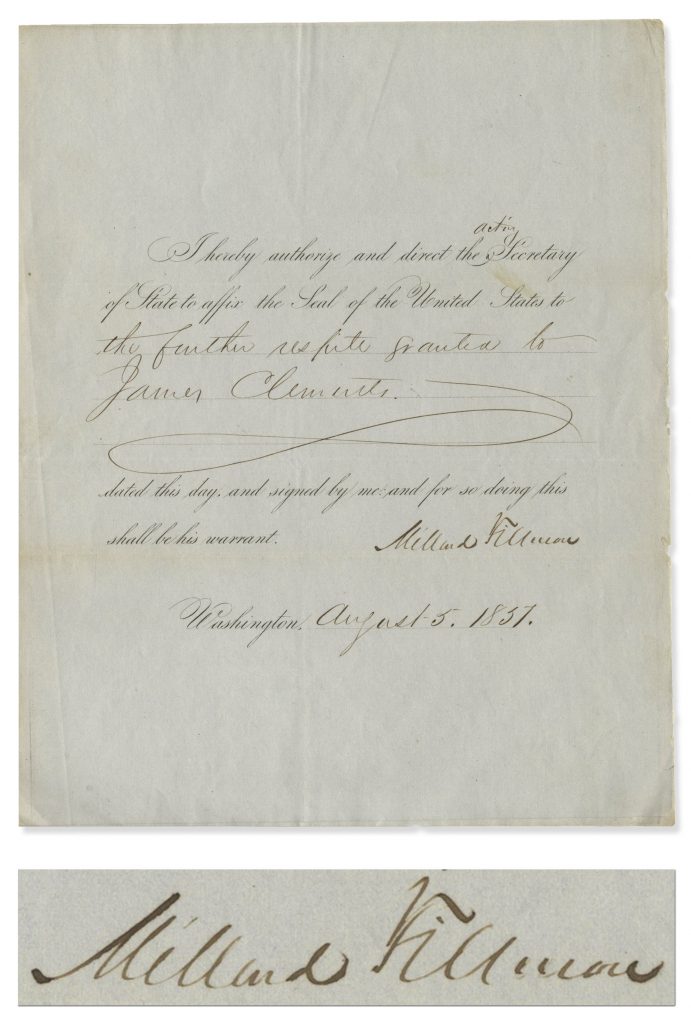 acting
I hereby authorize and direct the Secretary
of State to affix the Seal of the United States to
the further respite granted to
James Clements.
dated this day, and signed by me: and for so doing this
shall be his warrant.
Millard Fillmore
Washington, August 5. 1851.
Millard Fillmore